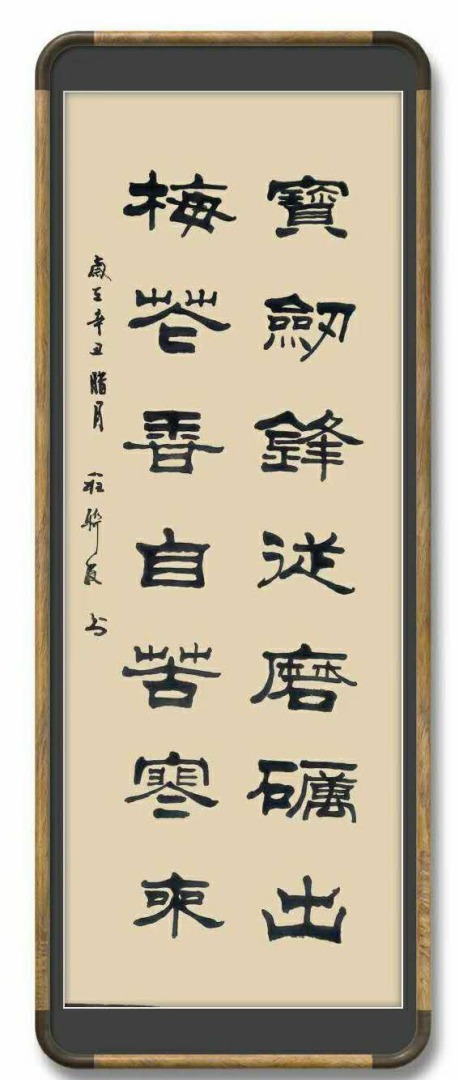 寶劒鋒從磨礪出
梅花香自苦寒來
歲在辛丑臘月 書